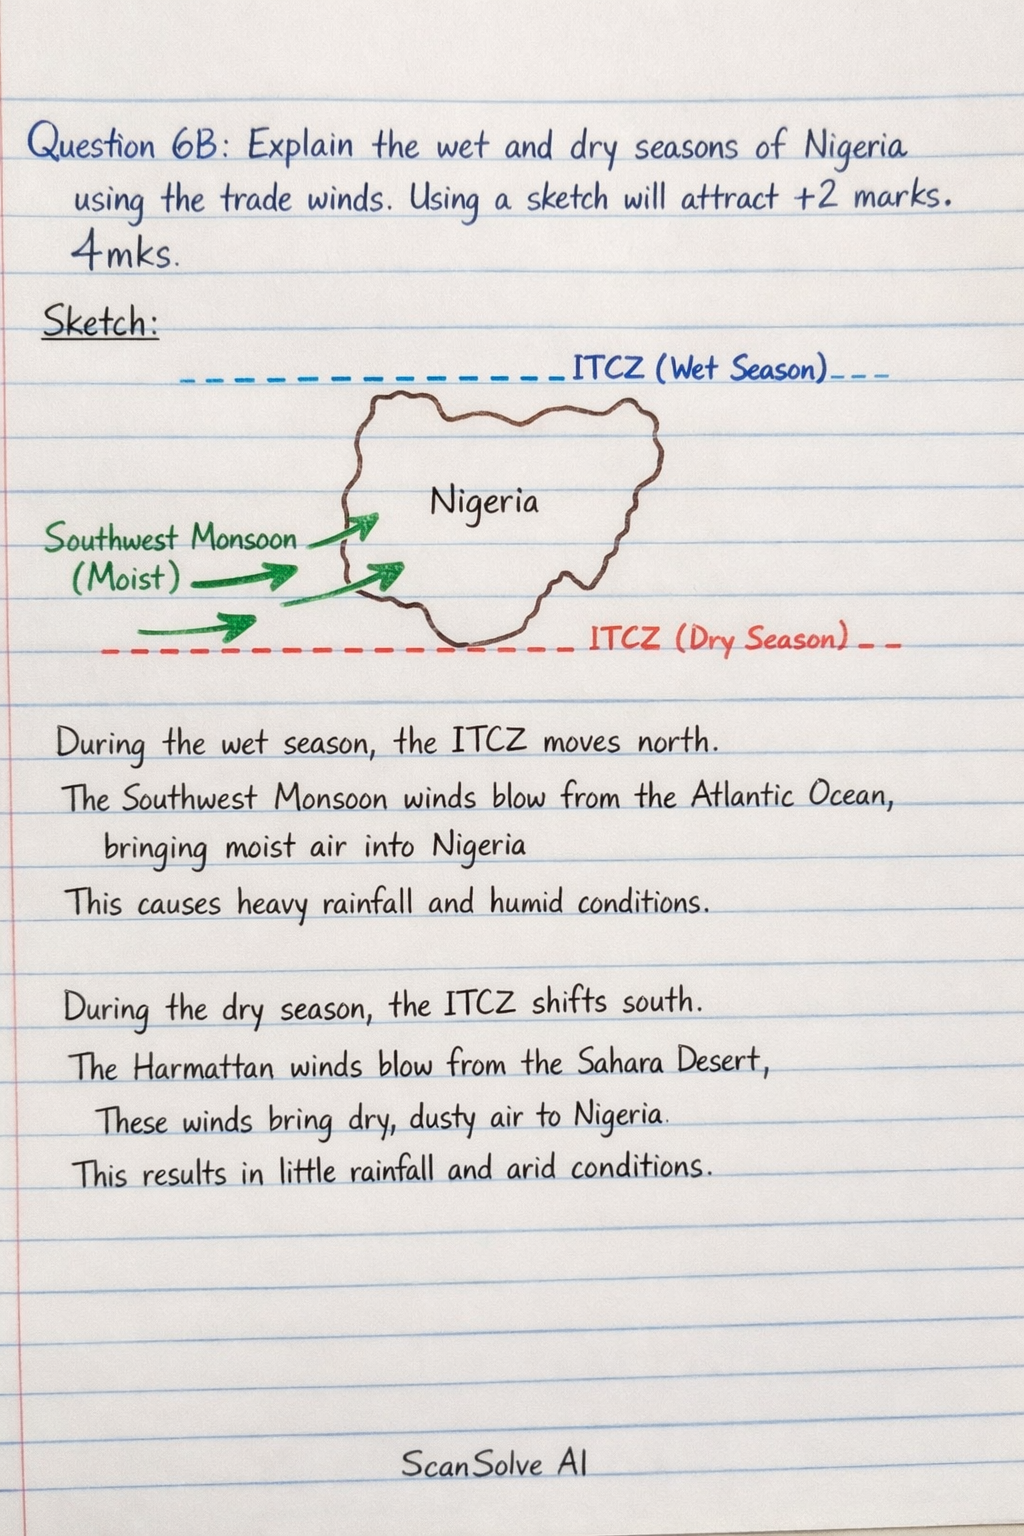 Question 6B: Explain the wet and dry seasons of Nigeria
using the trade winds. Using a sketch will attract +2 marks.
4mks.
Sketch:
ITCZ (Wet Season)
Nigeria
Southwest Monsoon
(Moist)
ITCZ (Dry Season)
During the wet season, the ITCZ moves north.
The Southwest Monsoon winds blow from the Atlantic Ocean,
bringing moist air into Nigeria
This causes heavy rainfall and humid conditions.
During the dry season, the ITCZ shifts south.
The Harmattan winds blow from the Sahara Desert,
These winds bring dry, dusty air to Nigeria.
This results in little rainfall and arid conditions.
ScanSolve AI